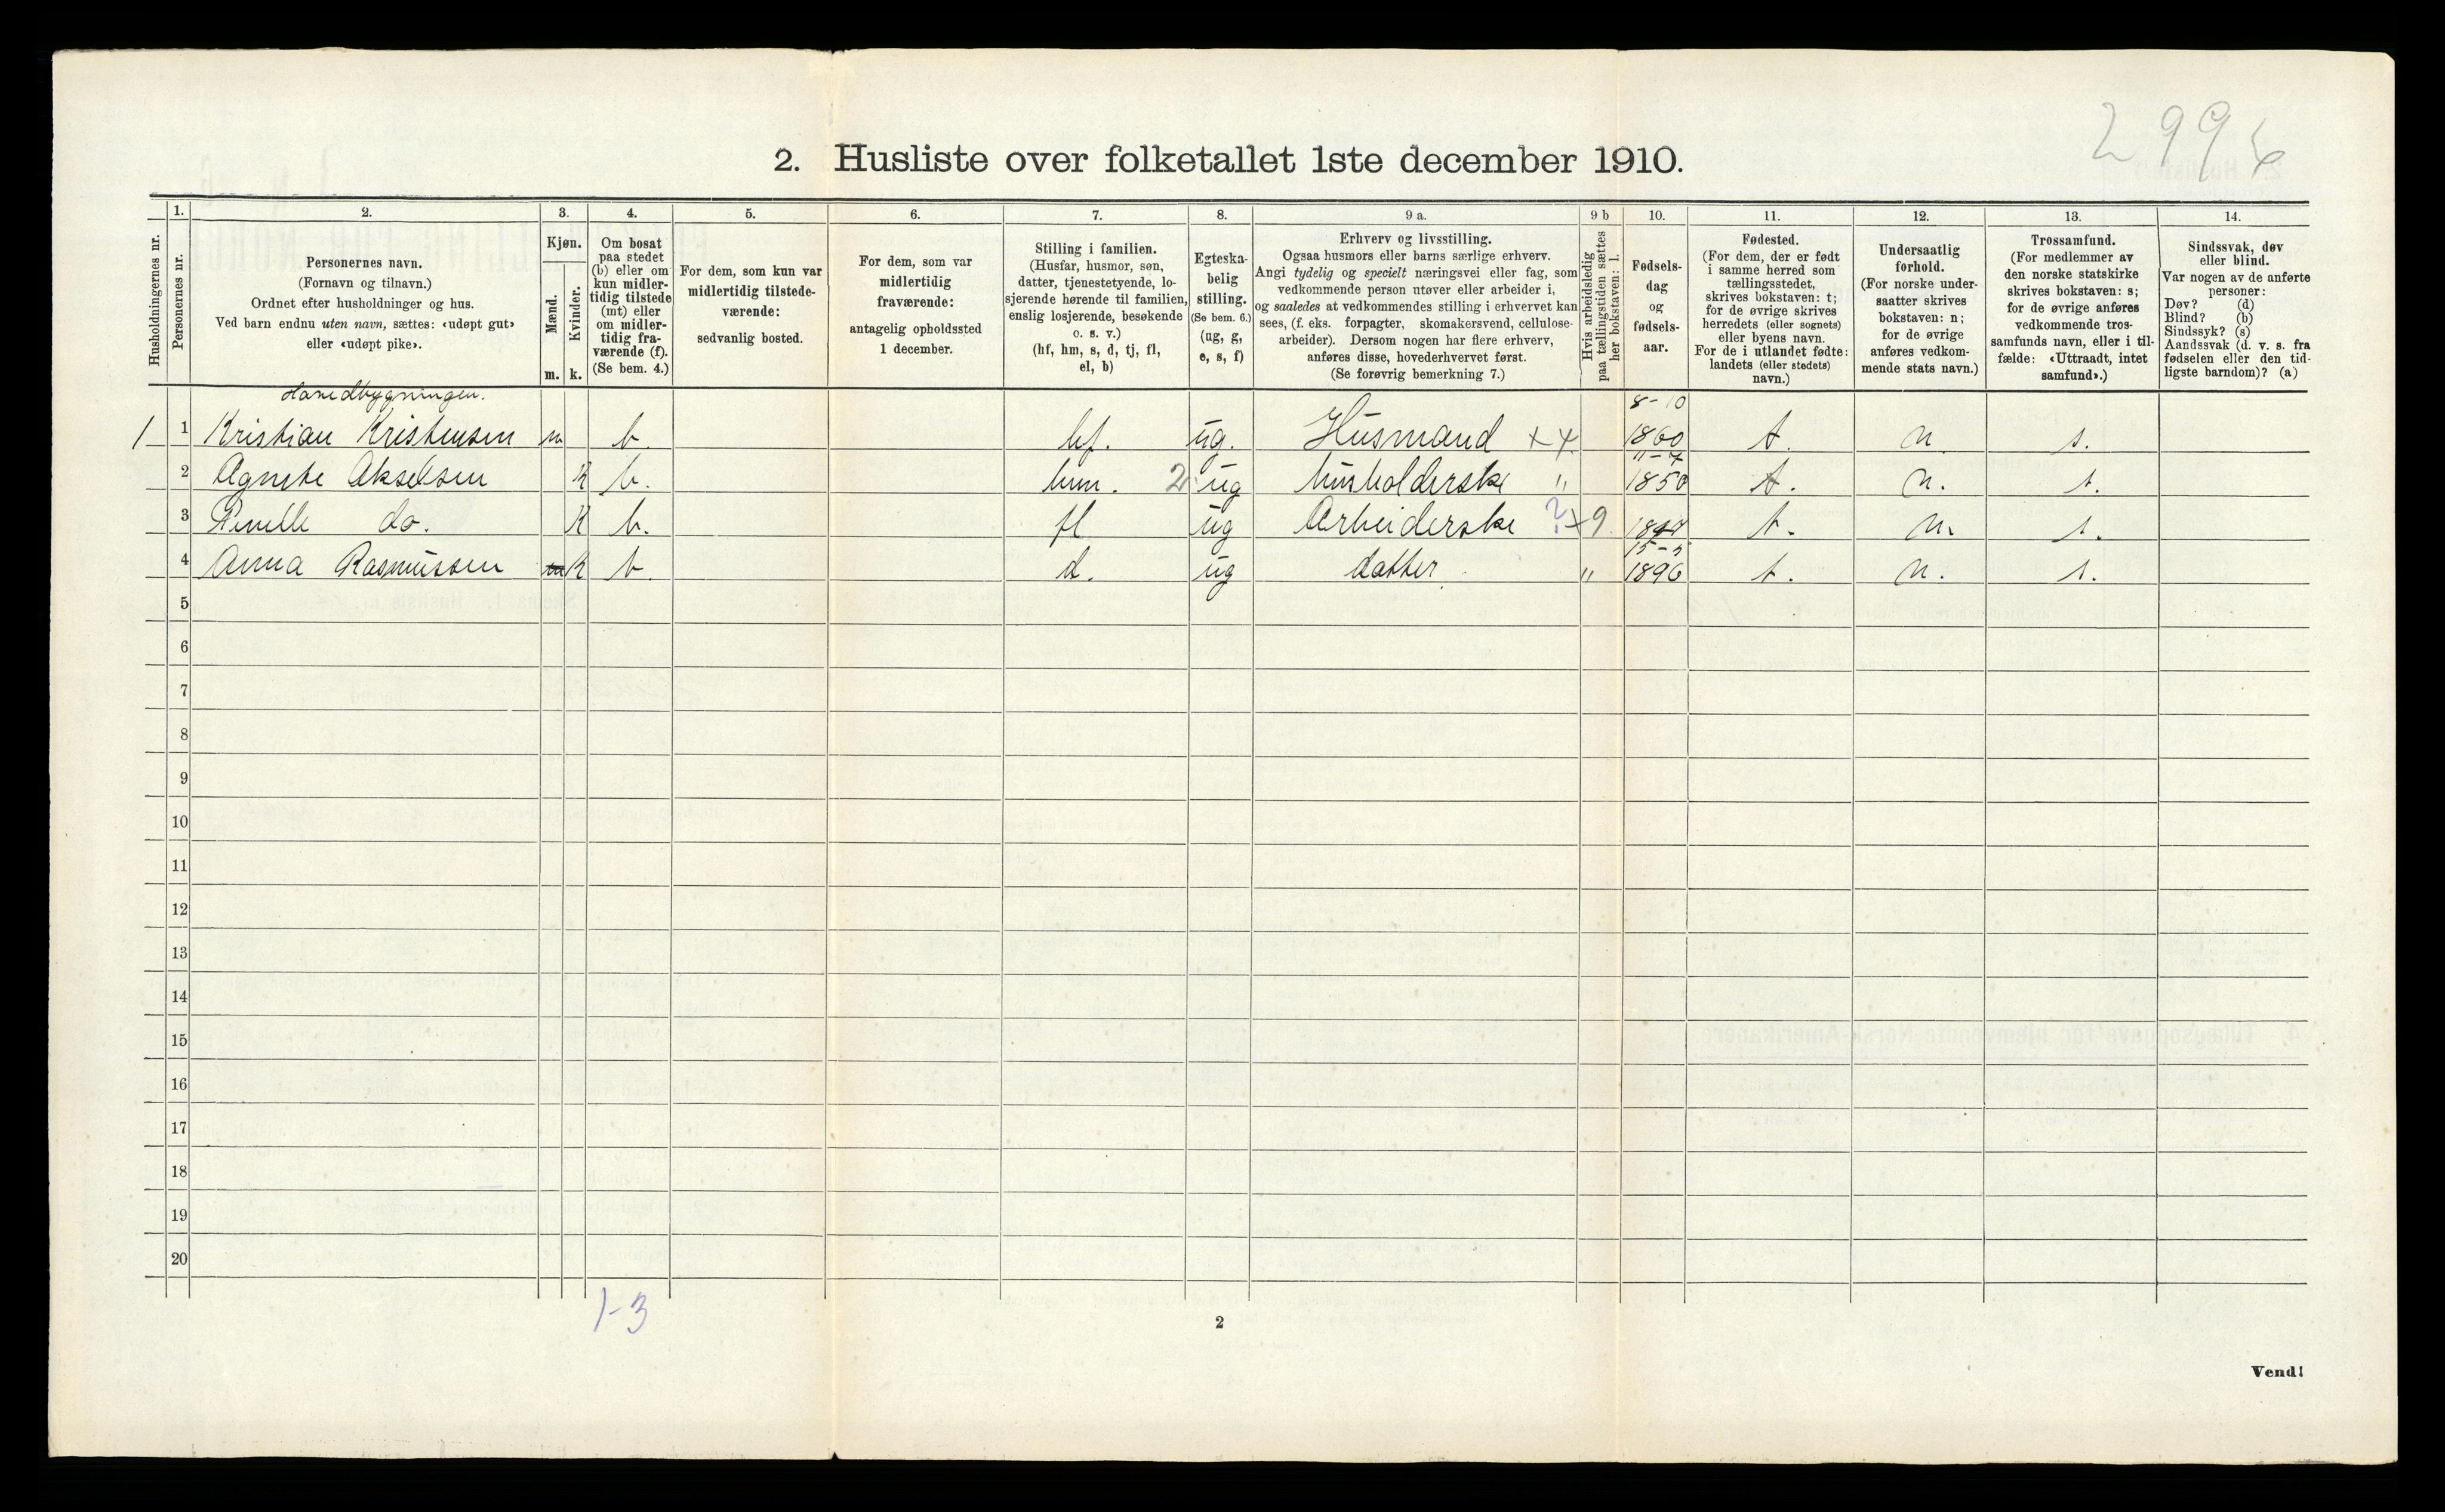 299
2. Husliste over folketallet 1ste december 1910.
Husholdningernes nr.
1.
Personernes nr.
2.
Personernes navn.
(Fornavn og tilnavn.)
Ordnet efter husholdninger og hus.
Ved barn endnu uten navn, sættes: «udøpt gut»
eller «udøpt pike».
3.
Kjøn.
Mænd.
Kvinder.
m. k.
4.
Om bosat
paa stedet
(b) eller om
kun midler-
tidig tilstede
(mt) eller
om midler-
tidig fra-
værende (f).
(Se bem. 4.)
5.
For dem, som kun var
midlertidig tilstede-
værende:
sedvanlig bosted.
6.
For dem, som var
midlertidig
fraværende:
antagelig opholdssted
1 december.
7.
Stilling i familien.
(Husfar, husmor, søn,
datter, tjenestetyende, lo-
sjerende hørende til familien,
enslig losjerende, besøkende
o. s. v.)
(hf, hm, s, d, tj, fl,
el, b)
8.
Egteska-
belig
stilling.
(Se bem. 6.)
(ug, g,
e, s, f)
9 a.
Erhverv og livsstilling.
Ogsaa husmors eller barns særlige erhverv.
Angi tydelig og specielt næringsvei eller fag, som
vedkommende person utøver eller arbeider i,
og saaledes at vedkommendes stilling i erhvervet kan
sees, (f. eks. forpagter, skomakersvend, cellulose-
arbeider). Dersom nogen har flere erhverv,
anføres disse, hovederhvervet først.
(Se forøvrig bemerkning 7.)
9 b
Hvis arbeidsledig
paa tællingstiden sættes
her bokstaven: l.
10.
Fødsels-
dag
og
fødsels-
aar.
11.
Fødested.
(For dem, der er født
i samme herred som
tællingsstedet,
skrives bokstaven: t;
for de øvrige skrives
herredets (eller sognets)
eller byens navn.
For de i utlandet fødte:
landets (eller stedets)
navn.)
12.
Undersaatlig
forhold.
(For norske under-
saatter skrives
bokstaven: n;
for de øvrige
anføres vedkom-
mende stats navn.)
13.
Trossamfund.
(For medlemmer av
den norske statskirke
skrives bokstaven: s;
for de øvrige anføres
vedkommende tros-
samfunds navn, eller i til-
fælde: «Uttraadt, intet
samfund».)
14.
Sindssvak, døv
eller blind.
Var nogen av de anførte
personer:
Døv? (d)
Blind? (b)
Sindssyk? (s)
Aandssvak (d. v. s. fra
fødselen eller den tid-
ligste barndom)? (a)
Hovedbygningen.
1 1 Kristian Kristensen m b. hf. ug. Husmand ++ 8-10 1860 t. n. s.
2 Agnete Akselsen K b. hm. 2 ug husholderske " 11-7 1850 t. n. s.
3 do. K b. fl ug Arbeiderske ? +9 t. n. s.
4 Anna Rasmussen m K b. d. ug datter " 15-5 1896 t. n. s.
5
6
7
8
9
10
11
12
13
14
15
16
17
18
19
20
1-3
2
Vend!